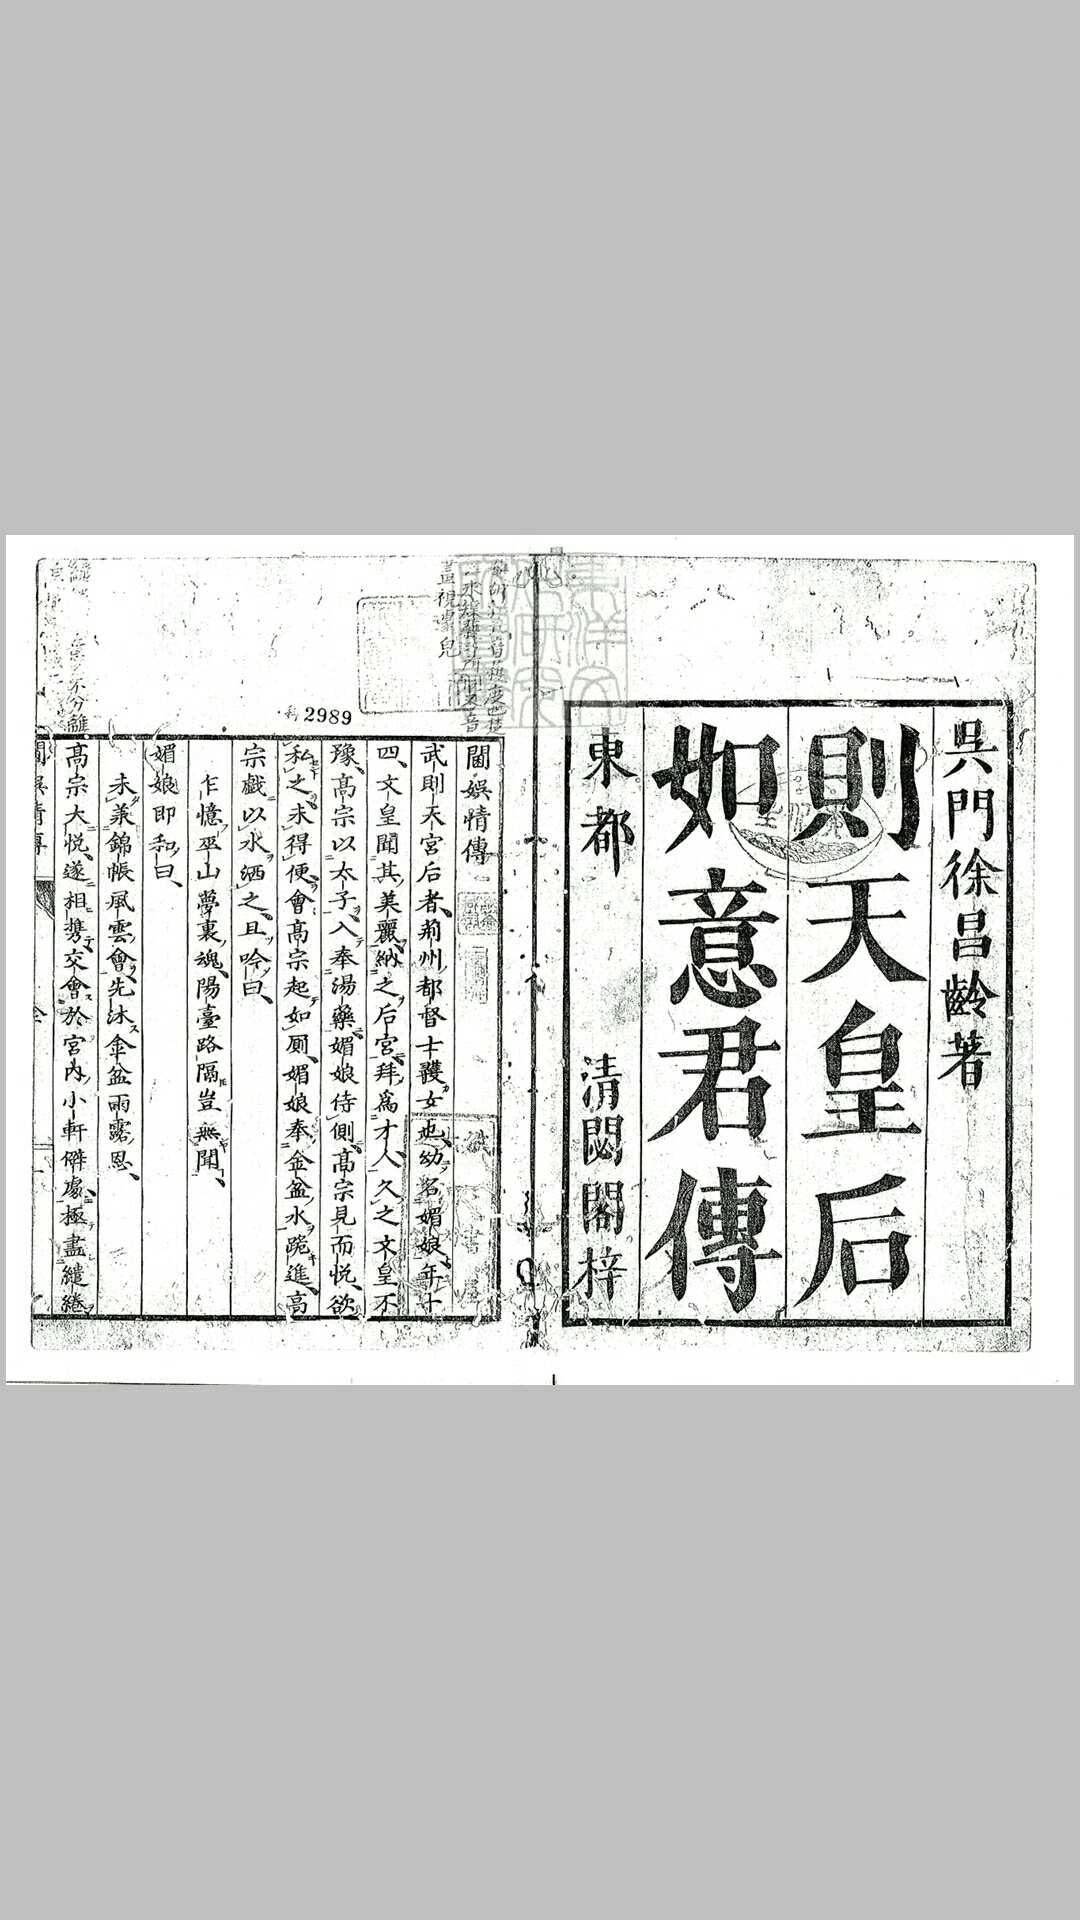 吳門徐昌齡著
則天皇后
如意君傳
東都 清閟閣梓
閫娛情傳
武則天宮后者、荊州都督士彠女也、幼名媚娘、年十
四、文皇聞其美麗、納之后宮、拜爲才人、久之文皇不
豫、高宗以太子、入奉湯藥、媚娘侍側、高宗見而悅、欲
私之、未得便、會高宗起如厠、媚娘奉金盆水跪進、高
宗戲以水洒之、且吟曰、
乍憶巫山夢裏魂、陽臺路隔豈無聞、
媚娘即和曰、
未羕錦帳風雲會、先沐金盆雨露恩、
高宗大悅、遂相携交會於宮內小軒僻處、極盡繾綣
不分離
2989